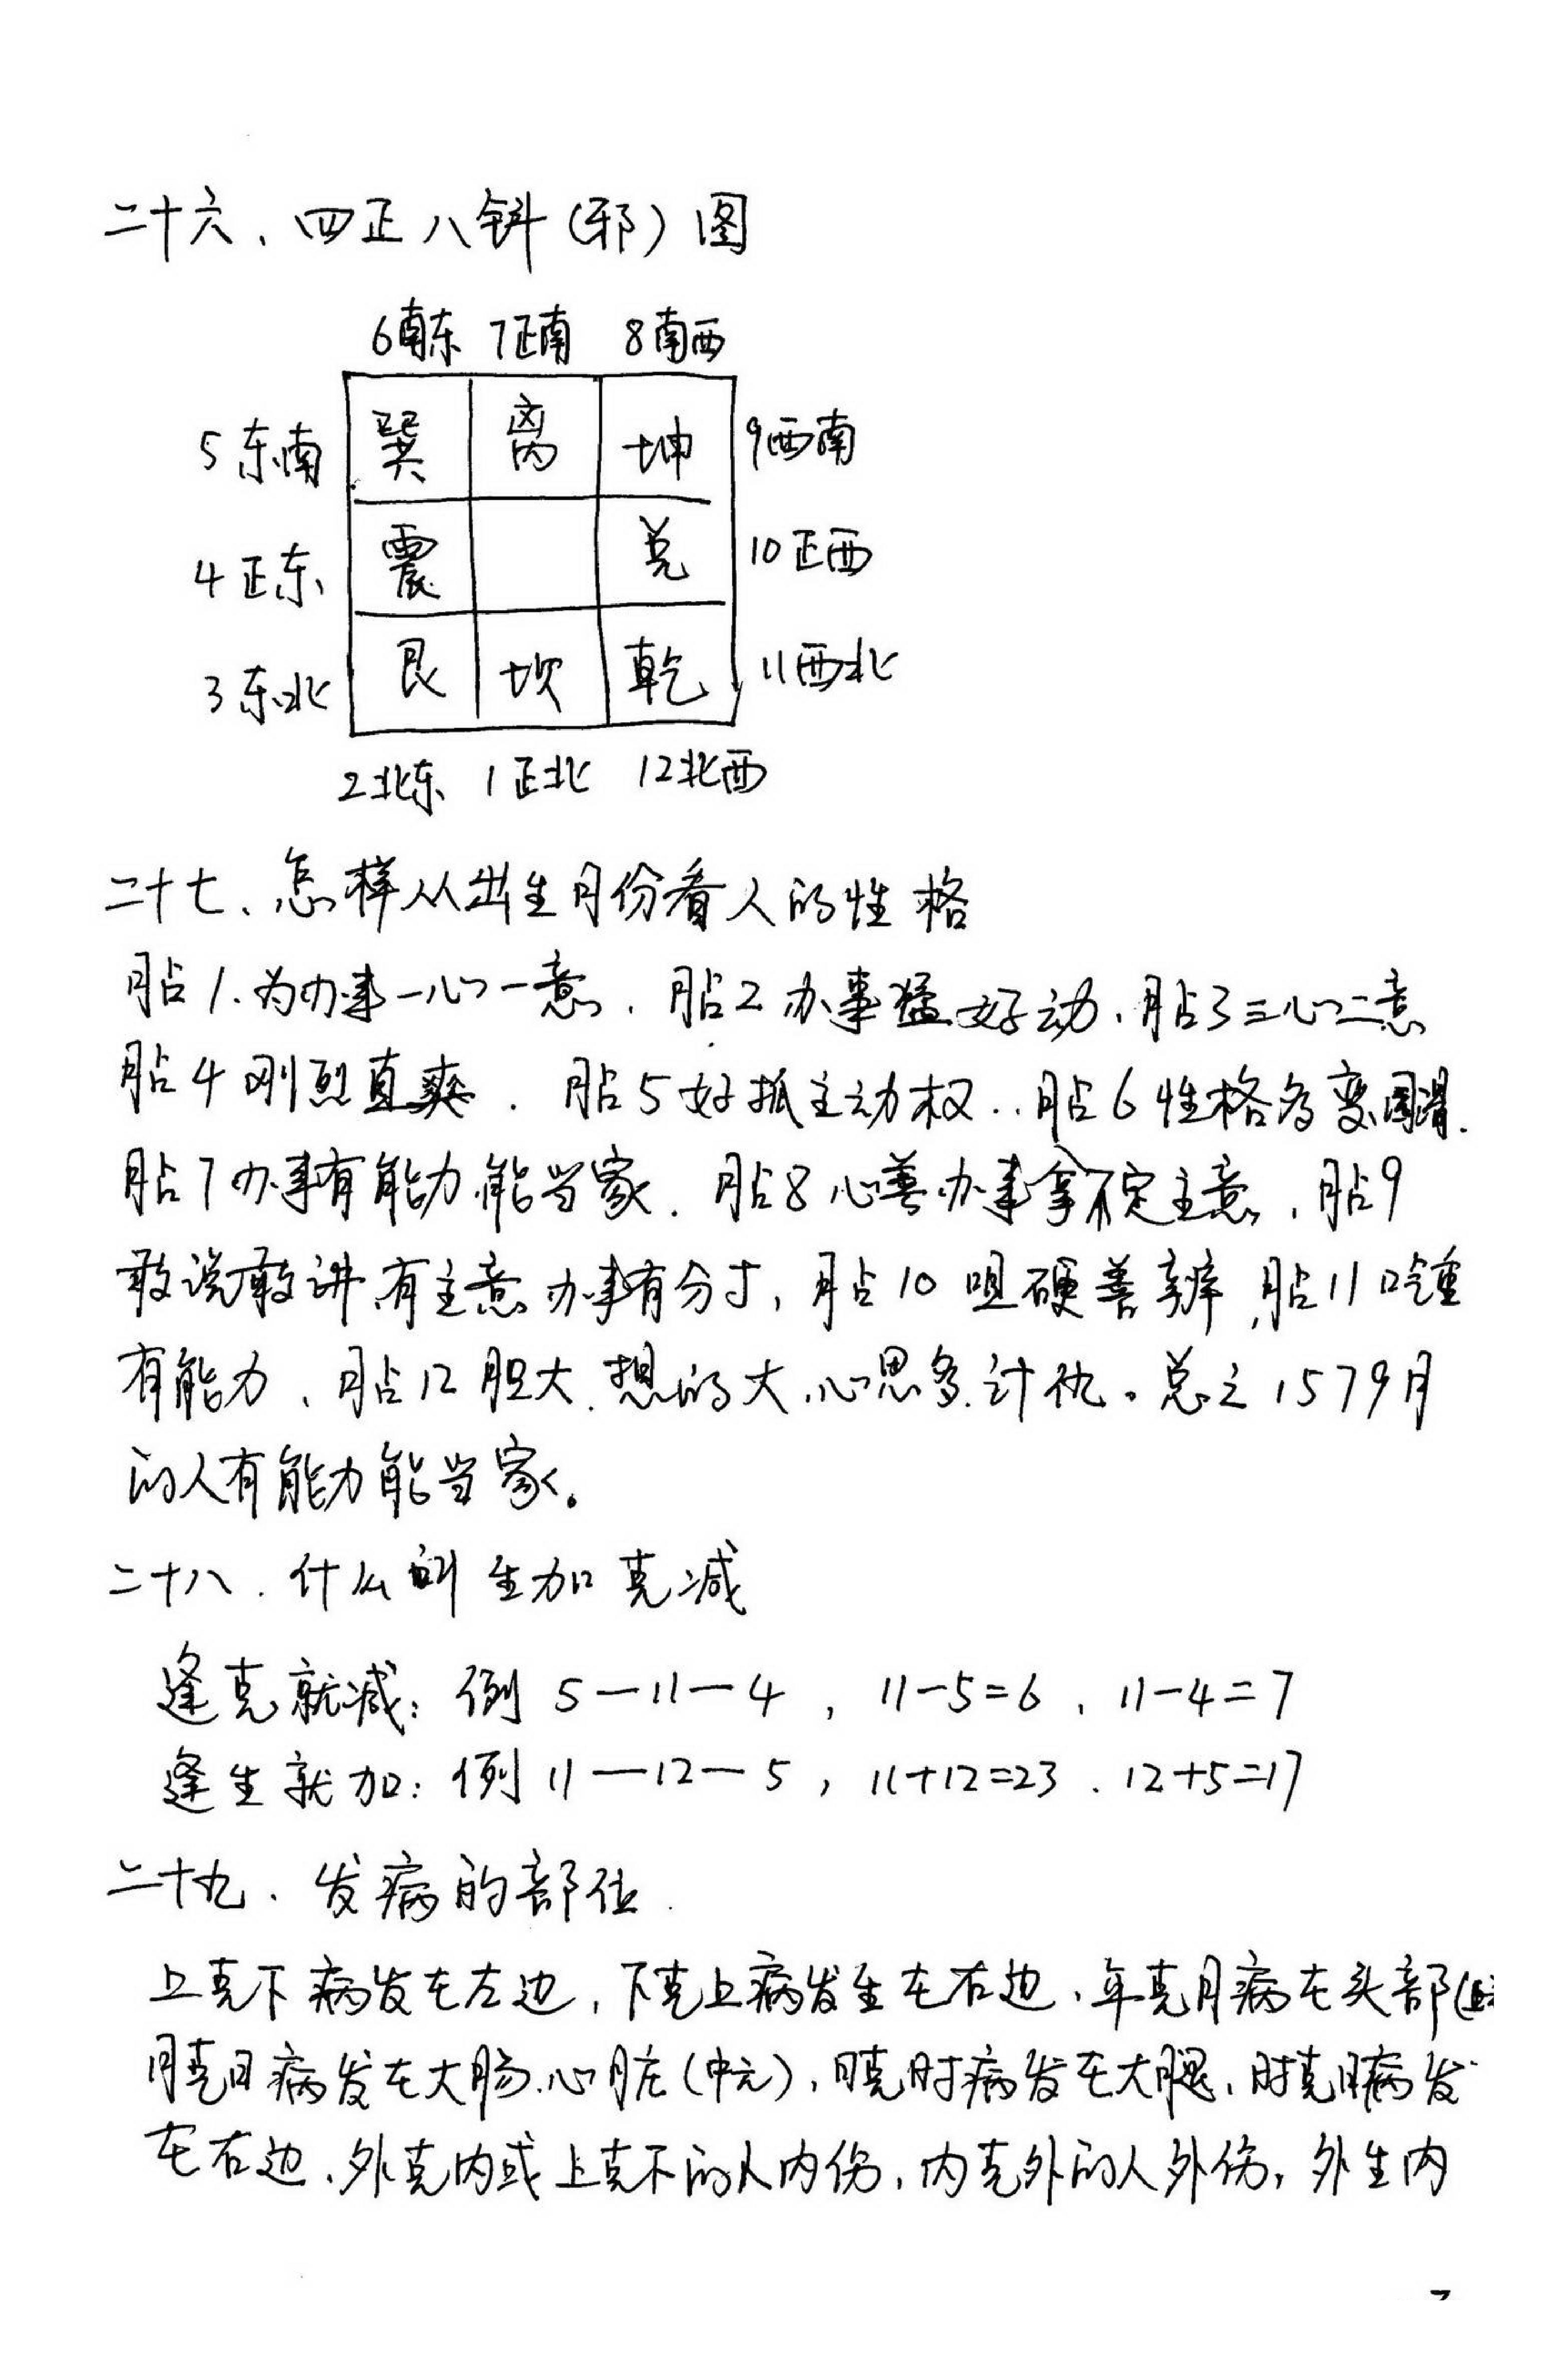 二十六、四正八斜(邪)图
6南东 7正南 8南西
5东南 巽 离 坤 9西南
4正东 震 兑 10正西
3东北 艮 坎 乾 11西北
2北东 1正北 12北西
二十七、怎样从出生月份看人的性格
月占1.为办事一心一意.月占2办事猛好动.月占3三心二意
月占4刚烈直爽.月占5好抓主动权..月占6性格多变圆滑.
月占7办事有能力能当家.月占8心善办事拿不定主意,月占9
敢说敢讲有主意办事有分寸,月占10咀硬善辨,月占11口重
有能力、月占12胆大.想的大,心思多.计仇。总之1579月
的人有能力能当家。
二十八.什么叫生加克减
逢克就减:例 5—11—4,11-5=6、11-4=7
逢生就加:例 11—12—5,11+12=23.12+5=17
二十九、发病的部位.
上克下病发在左边,下克上病发生在右边、年克月病在头部(
月克日病发在大肠.心脏(中元),日克时病发在大腿、时克日病发
在右边、外克内或上克下的人内伤,内克外的人外伤,外生内